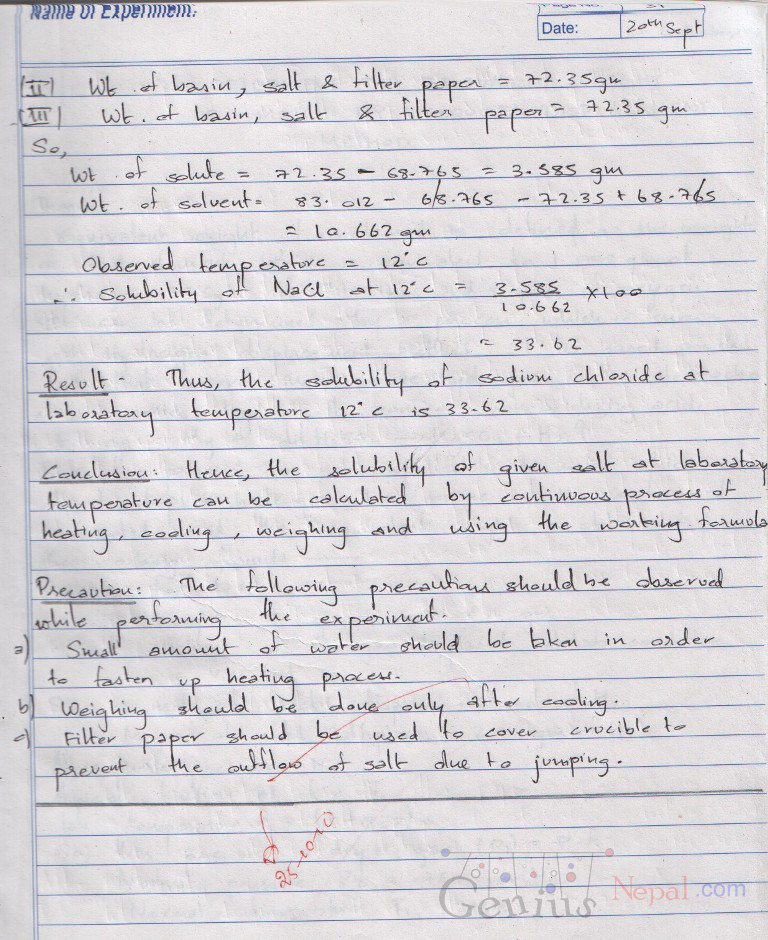 Name of Experiment:
Date: 20th Sept
[II] Wt. of basin, salt & filter paper = 72.35gm
[III] Wt. of basin, salt & filter paper = 72.35 gm
So,
Wt of solute = 72.35 - 68.765 = 3.585 gm
Wt. of solvent = 83.012 - 68.765 - 72.35 + 68.765
= 10.662 gm
Observed temperature = 12°c
∴ Solubility of NaCl at 12°c = 3.585 / 10.662 ×100
= 33.62
Result - Thus, the solubility of sodium chloride at
laboratory temperature 12°c is 33.62
Conclusion: Hence, the solubility of given salt at laboratory
temperature can be calculated by continuous process of
heating, cooling, weighing and using the working formula
Precaution: The following precautions should be observed
while performing the experiment.
a) Small amount of water should be taken in order
to fasten up heating process.
b) Weighing should be done only after cooling.
c) Filter paper should be used to cover crucible to
prevent the outflow of salt due to jumping.
25-10-10
Genius Nepal.com